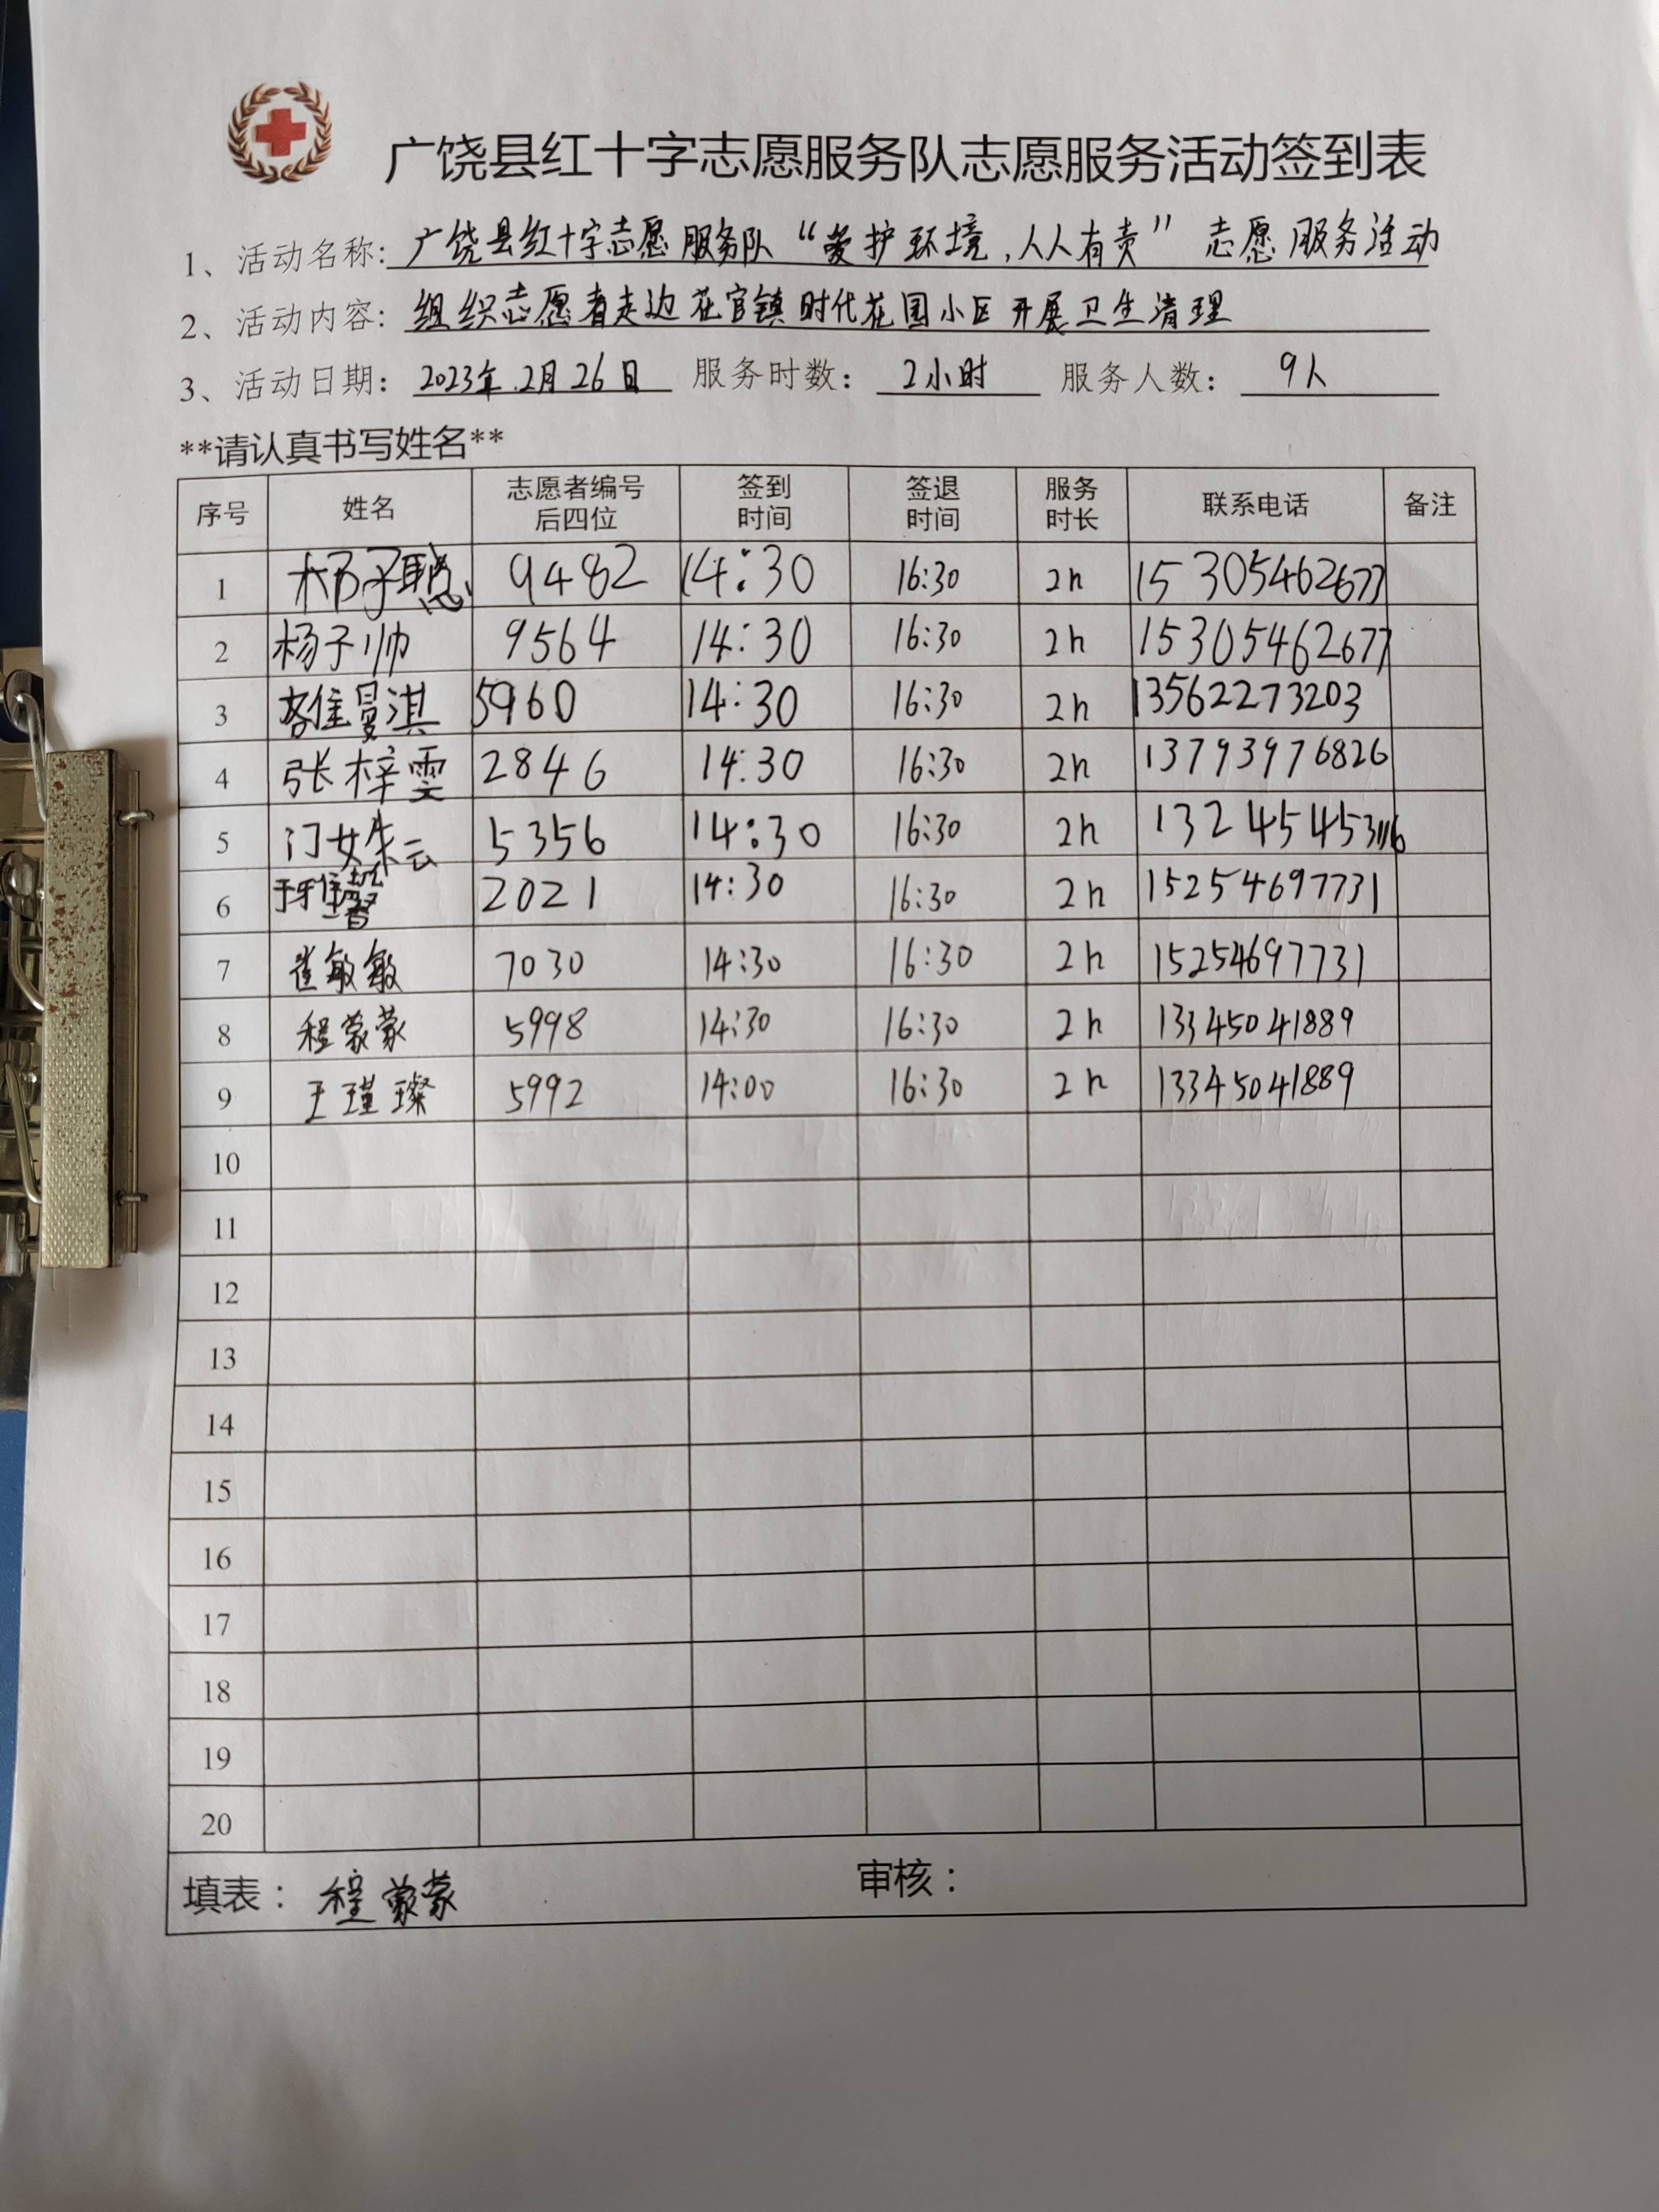 广饶县红十字志愿服务队志愿服务活动签到表
1、活动名称: 广饶县红十字志愿服务队“爱护环境,人人有责”志愿服务活动
2、活动内容: 组织志愿者走边花官镇时代花园小区开展卫生清理
3、活动日期: 2023年.2月26日 服务时数: 2小时 服务人数: 9人
**请认真书写姓名**
序号 姓名 志愿者编号后四位 签到时间 签退时间 服务时长 联系电话 备注
1 杨子聪 9482 14:30 16:30 2h 15305462677
2 杨子帅 9564 14:30 16:30 2h 15305462677
3 曼淇 5960 14:30 16:30 2h 13562273203
4 张梓雯 2846 14:30 16:30 2h 13793976826
5 门姝云 5356 14:30 16:30 2h
6 2021 14:30 16:30 2h 15254697731
7 崔敏敏 7030 14:30 16:30 2h 15254697731
8 程蒙蒙 5998 14:30 16:30 2h 13345041889
9 王瑾璨 5992 14:00 16:30 2h 13345041889
10
11
12
13
14
15
16
17
18
19
20
填表: 程蒙蒙 审核: